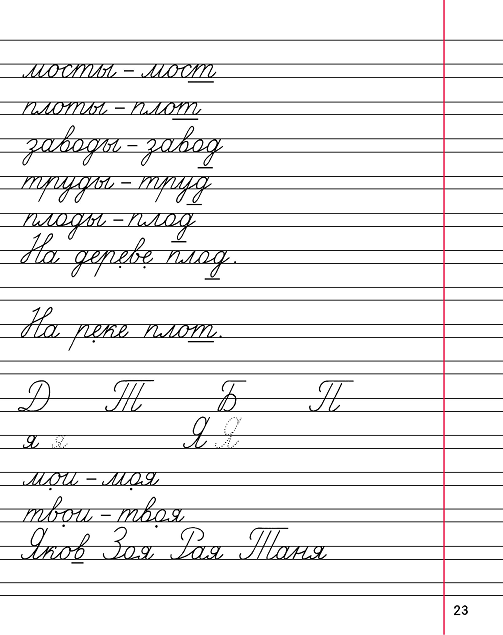 мосты – мост
плоты – плот
заводы – завод
труды – труд
плоды – плод
На дереве плод.
На реке плот.
Д Т Б П
я я Я Я
мои – моя
твои – твоя
Яков Зоя Рая Таня
23